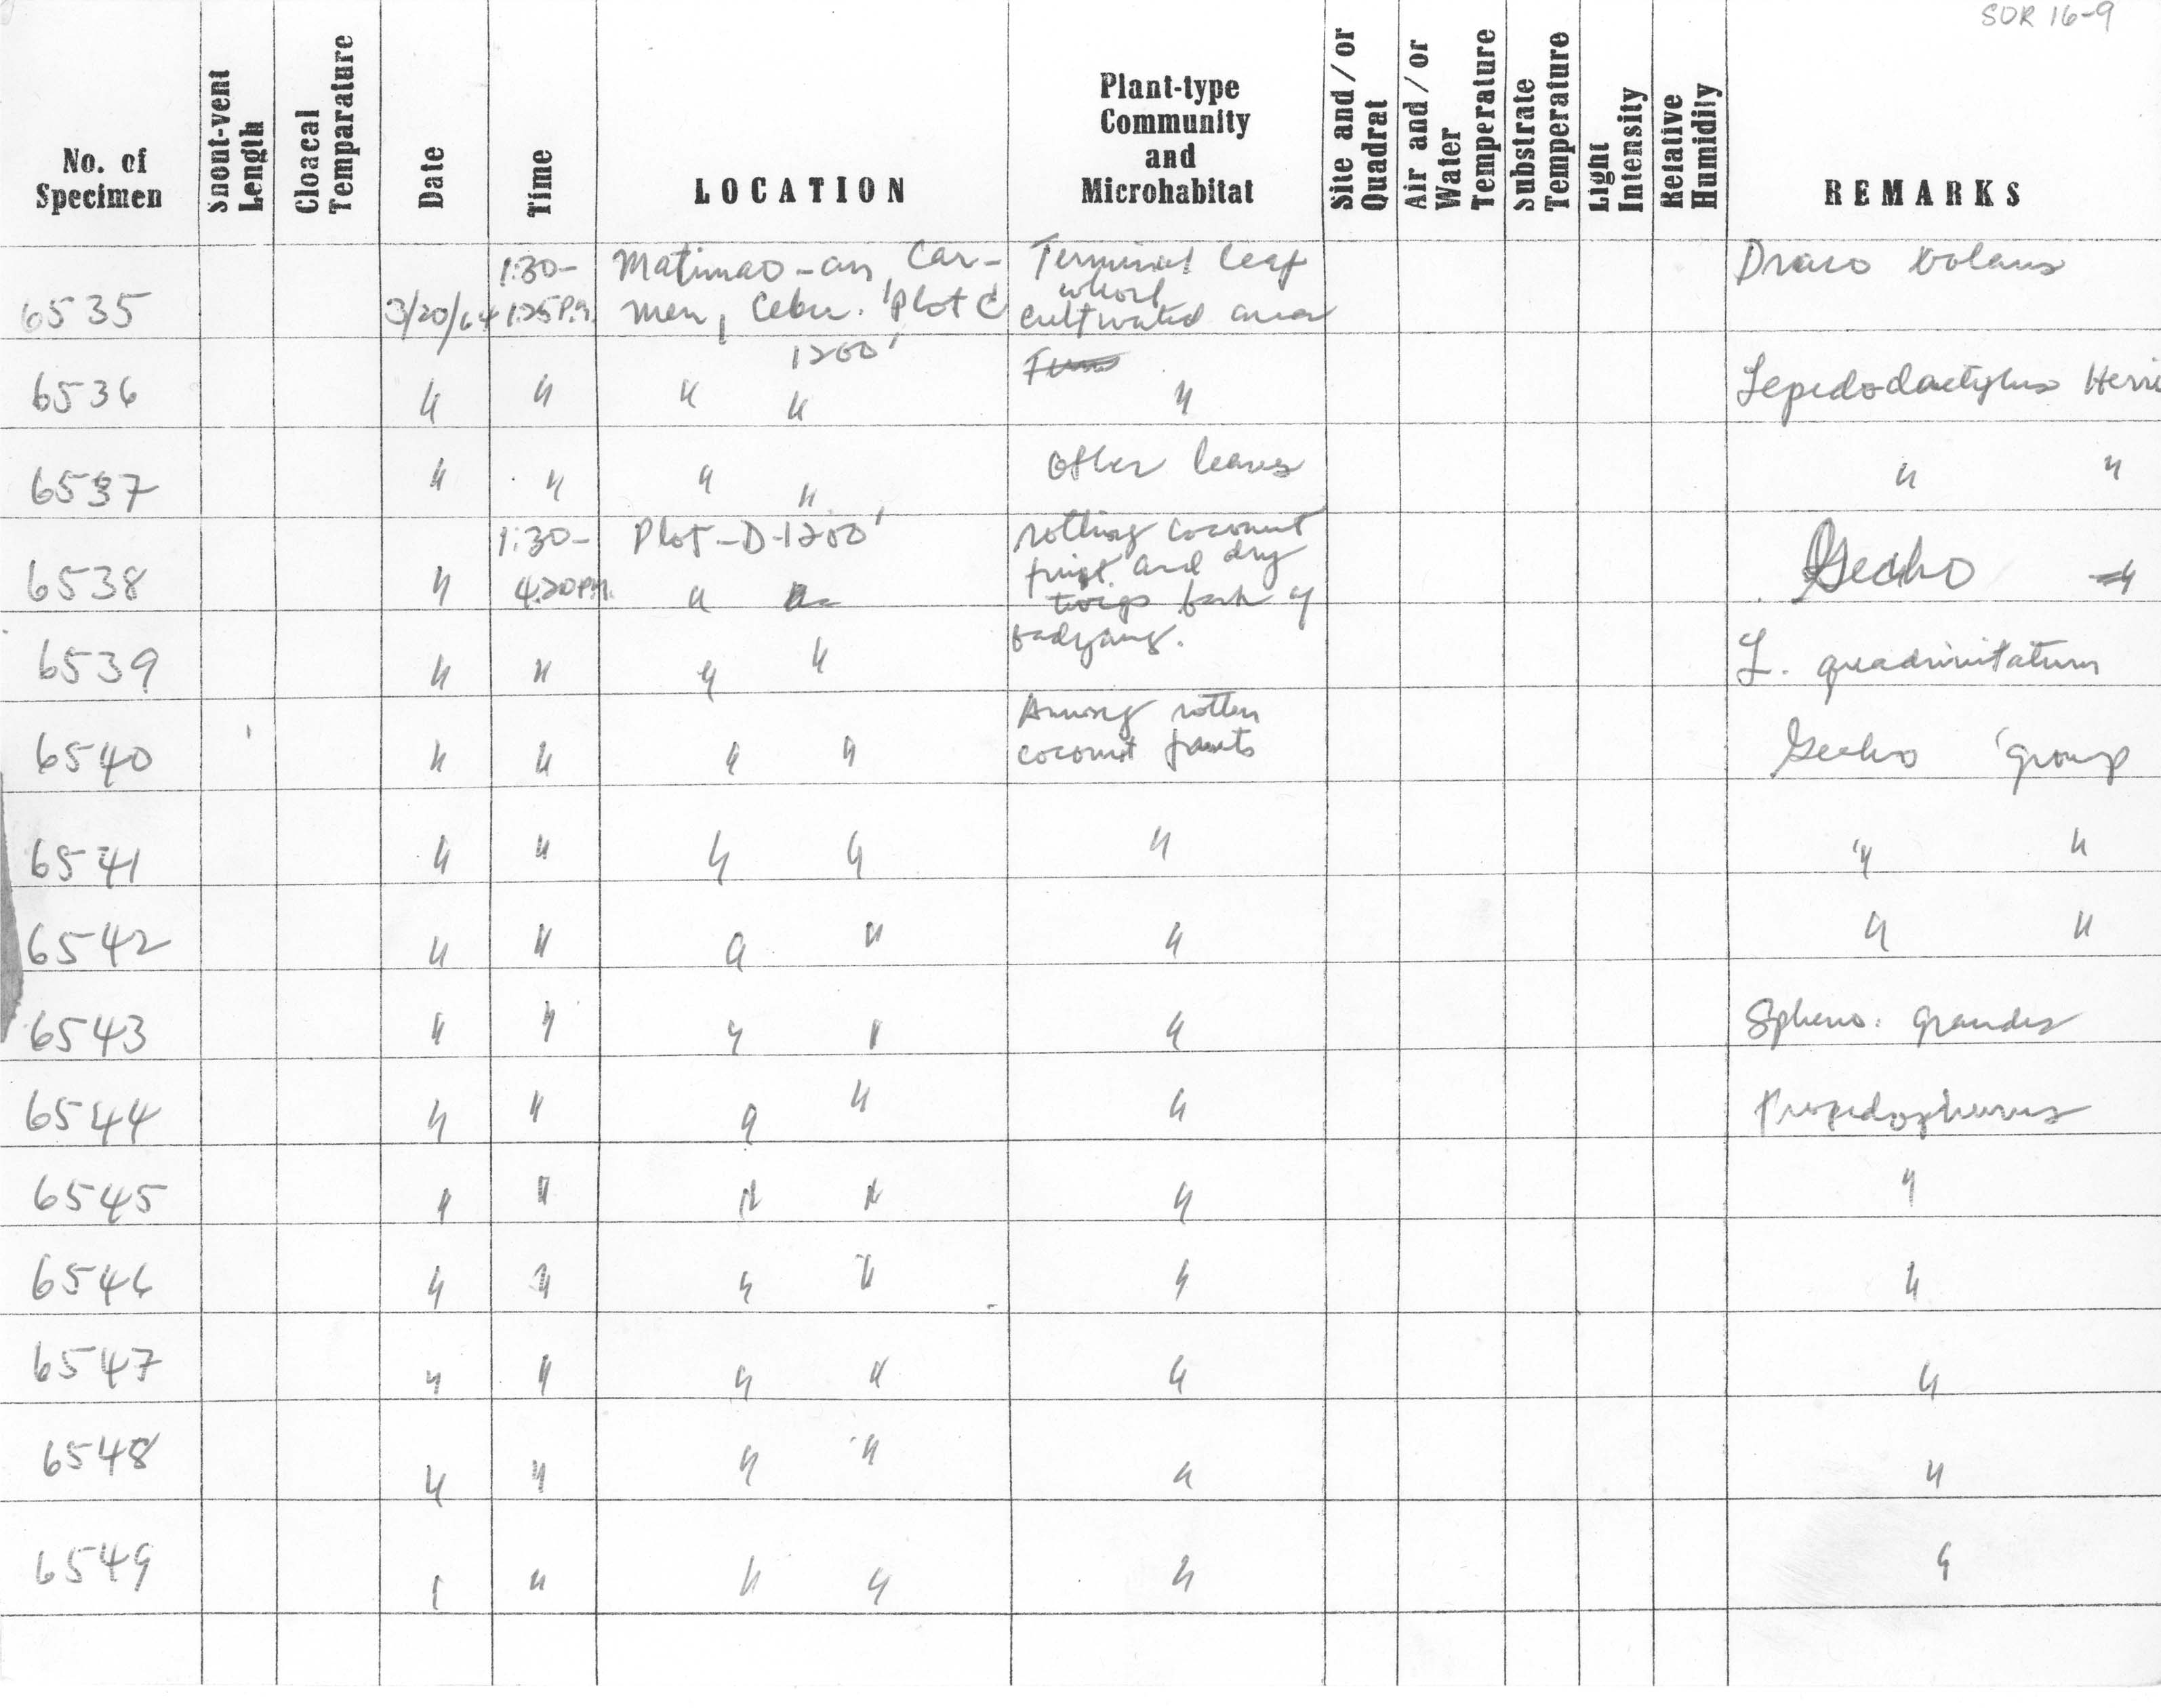 SOR 16-9
No. of Specimen
Snout-vent Length
Cloacal Temparature
Date
Time
LOCATION
Plant-type Community and Microhabitat
Site and / or Quadrat
Air and / or Water Temperature
Substrate Temperature
Light Intensity
Relative Humidity
REMARKS
6535 3/20/64 1:30- 1:25 P.M. Matimao-an, Car- men, Cebu. Plot C Terminal leaf whorl cultivated area Draco volans
1200'
6536 " " " " " Lepedodactylus Herri
6537 " " " " Other leaves " "
6538 " 1:30- 4:20 P.M. Plot-D-1200' " rotting coconut fruit and dry twigs bark of badyang. Gecko
6539 " " " " L. quadrivitatum
6540 " " " " Among rotten coconut fruits Gecko 'group
6541 " " " " " " "
6542 " " " " " " "
6543 " " " " " Spheno. grandis
6544 " " " " "
6545 " " " " " "
6546 " " " " " "
6547 " " " " " "
6548 " " " " " "
6549 " " " " " "